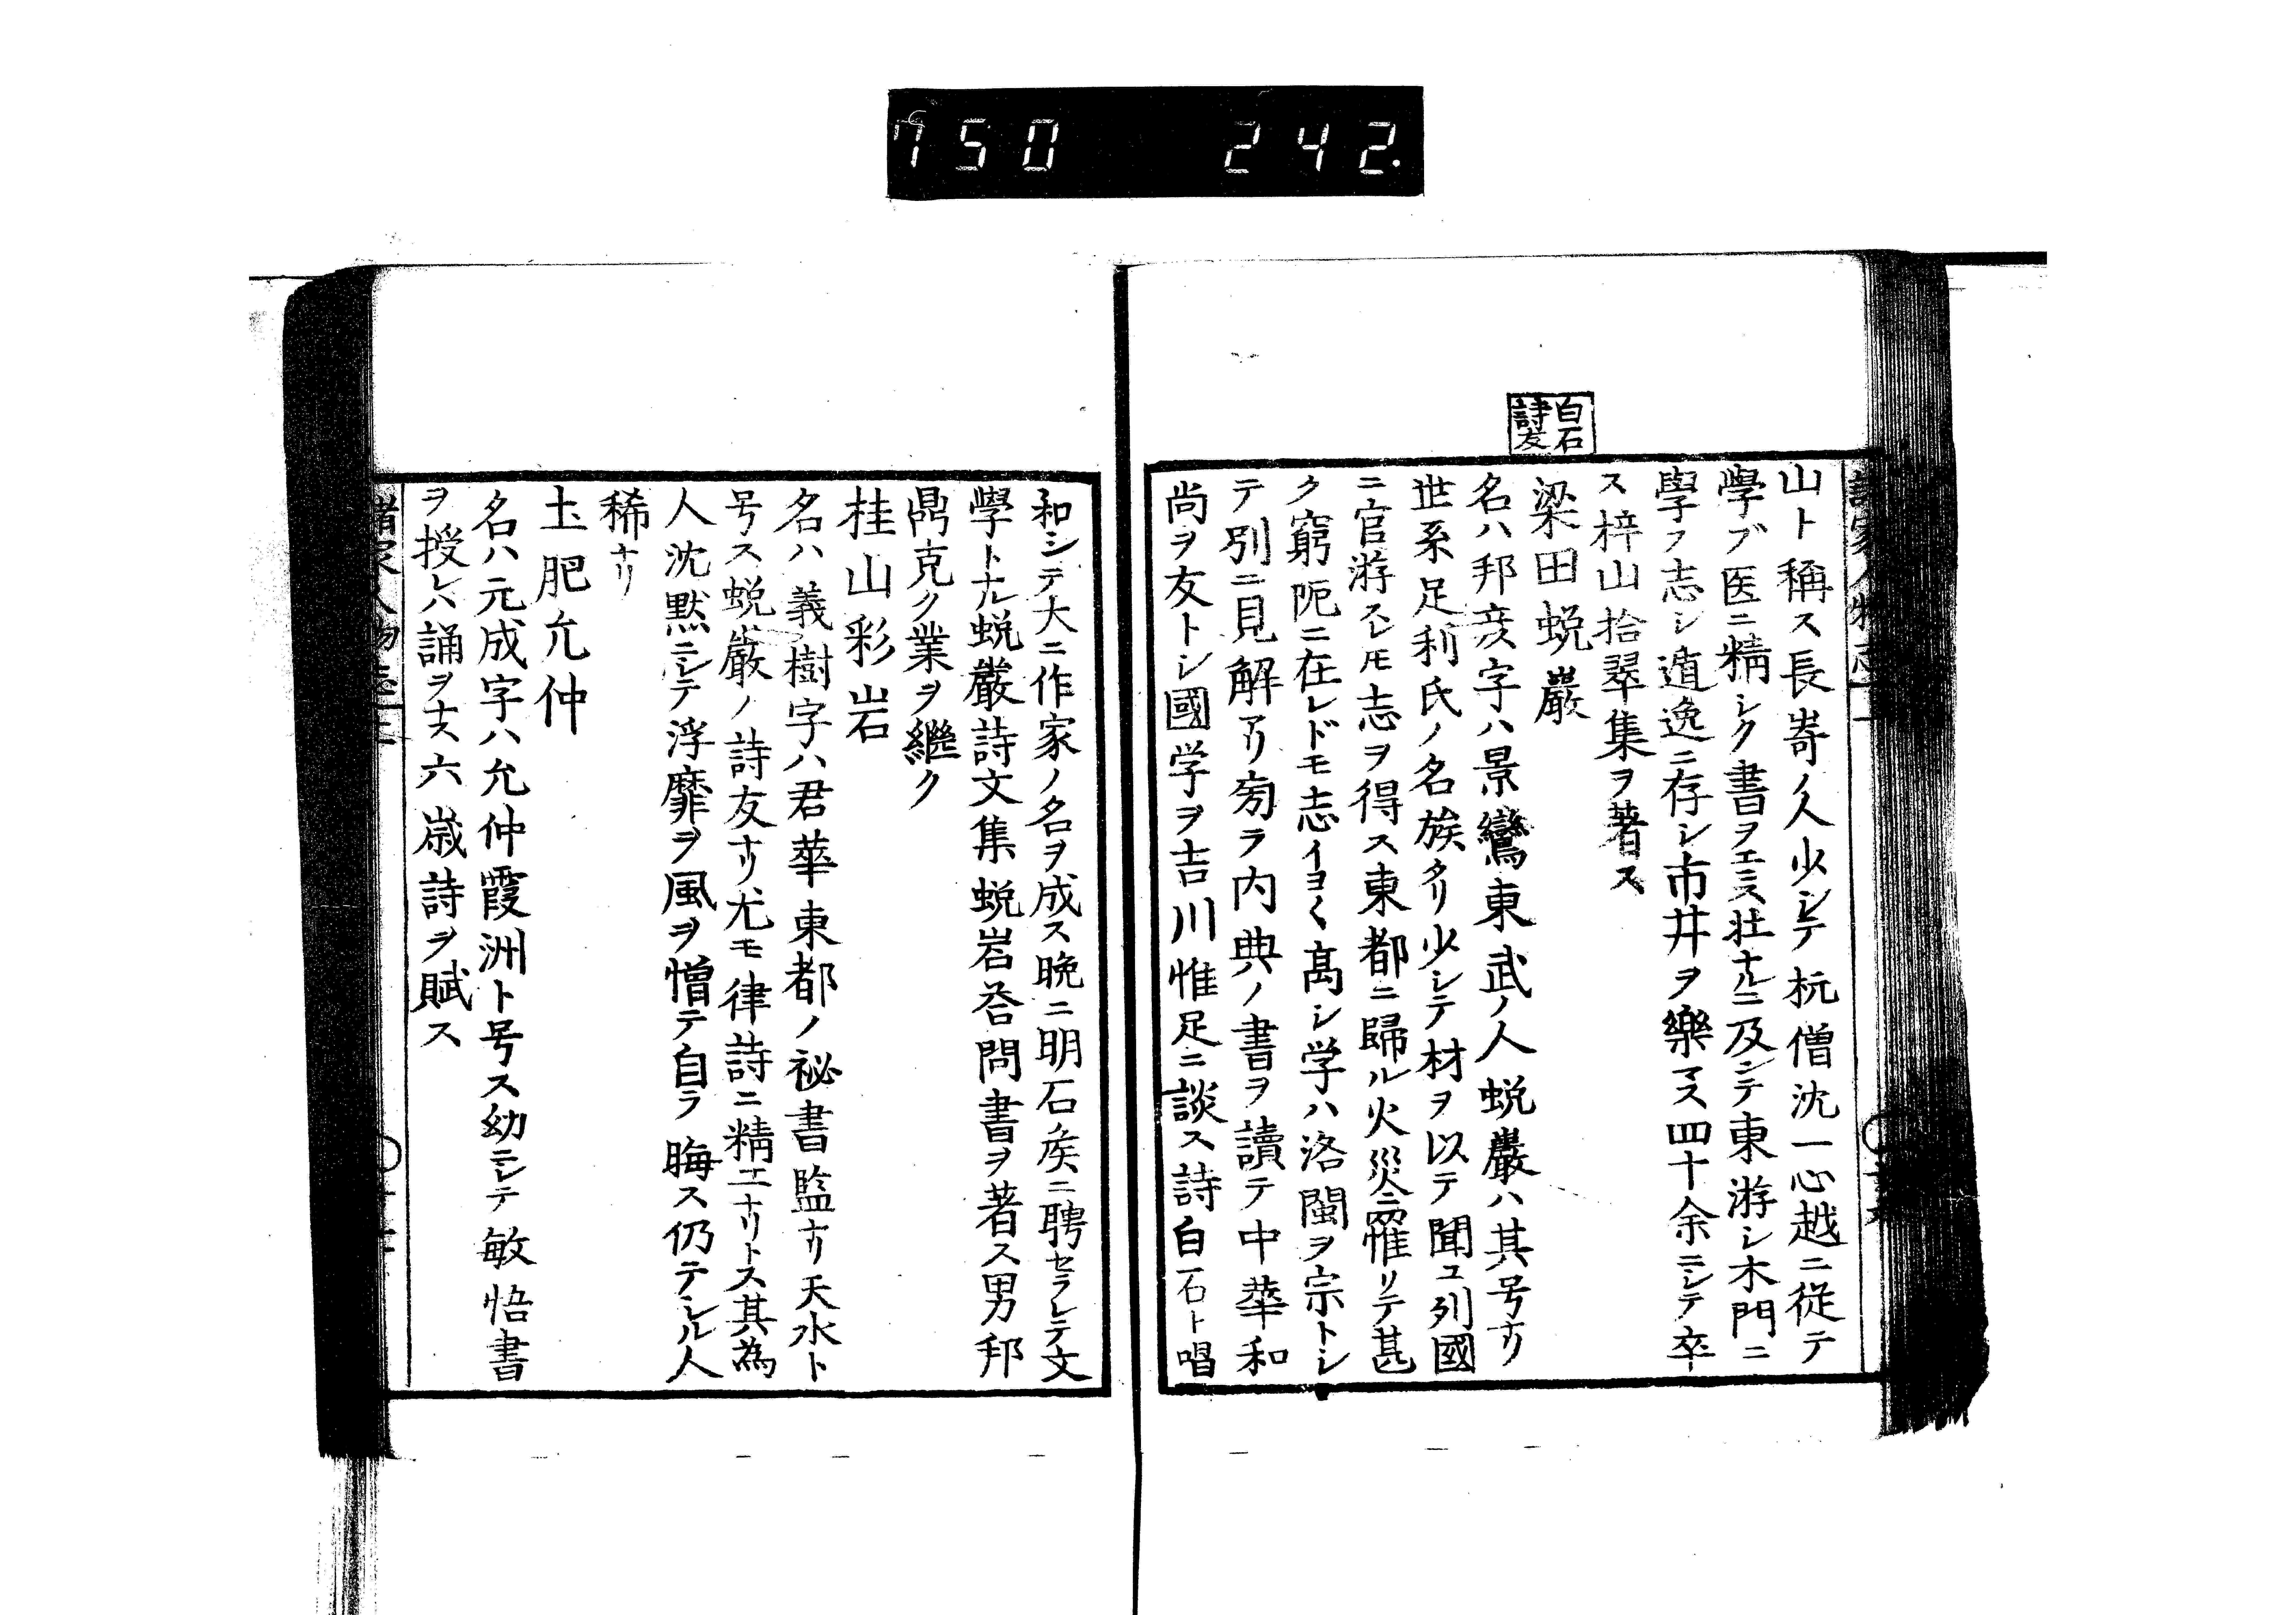 750 242.
白石
詩友
山ト稱ス長嵜ノ人少シテ杭僧沈一心越ニ從テ
學ブ医ニ精シク書ヲエミス壮ナルニ及ンテ東游シ木門ニ
學フ志シ遁逸ニ存シ市井ヲ樂マス四十余ニシテ卒
ス梓山拾翠集ヲ著ス
梁田蛻巖
名ハ邦彦字ハ景鸞東武ノ人蛻巖ハ其号ナリ
世系足利氏ノ名族タリ少シテ材ヲ以テ聞ユ列國
ニ官游スレ𪜈志ヲ得ス東都ニ歸ル火災ニ罹リテ甚
ク窮阨ニ在レドモ志イヨ〱高シ学ハ洛閩ヲ宗トシ
テ別ニ見解アリ旁ラ内典ノ書ヲ讀テ中華和
尚ヲ友トシ國学ヲ吉川惟足ニ談ス詩白石ト唱
和シテ大ニ作家ノ名ヲ成ス晩ニ明石矦ニ聘セラレテ文
學トナル蛻巖詩文集蛻岩荅問書ヲ著ス男邦
鼎克ク業ヲ繼ク
桂山彩岩
名ハ義樹字ハ君華東都ノ祕書監ナリ天水ト
号ス蛻巖ノ詩友ナリ尤モ律詩ニ精工ナリトス其為
人沈黙ニシテ浮靡ヲ風ヲ憎テ自ラ晦ス仍テシル人
稀ナリ
土肥允仲
名ハ元成字ハ允仲霞洲ト号ス幼ニシテ敏悟書
ヲ授レハ誦ヲナス六歳詩ヲ賦ス